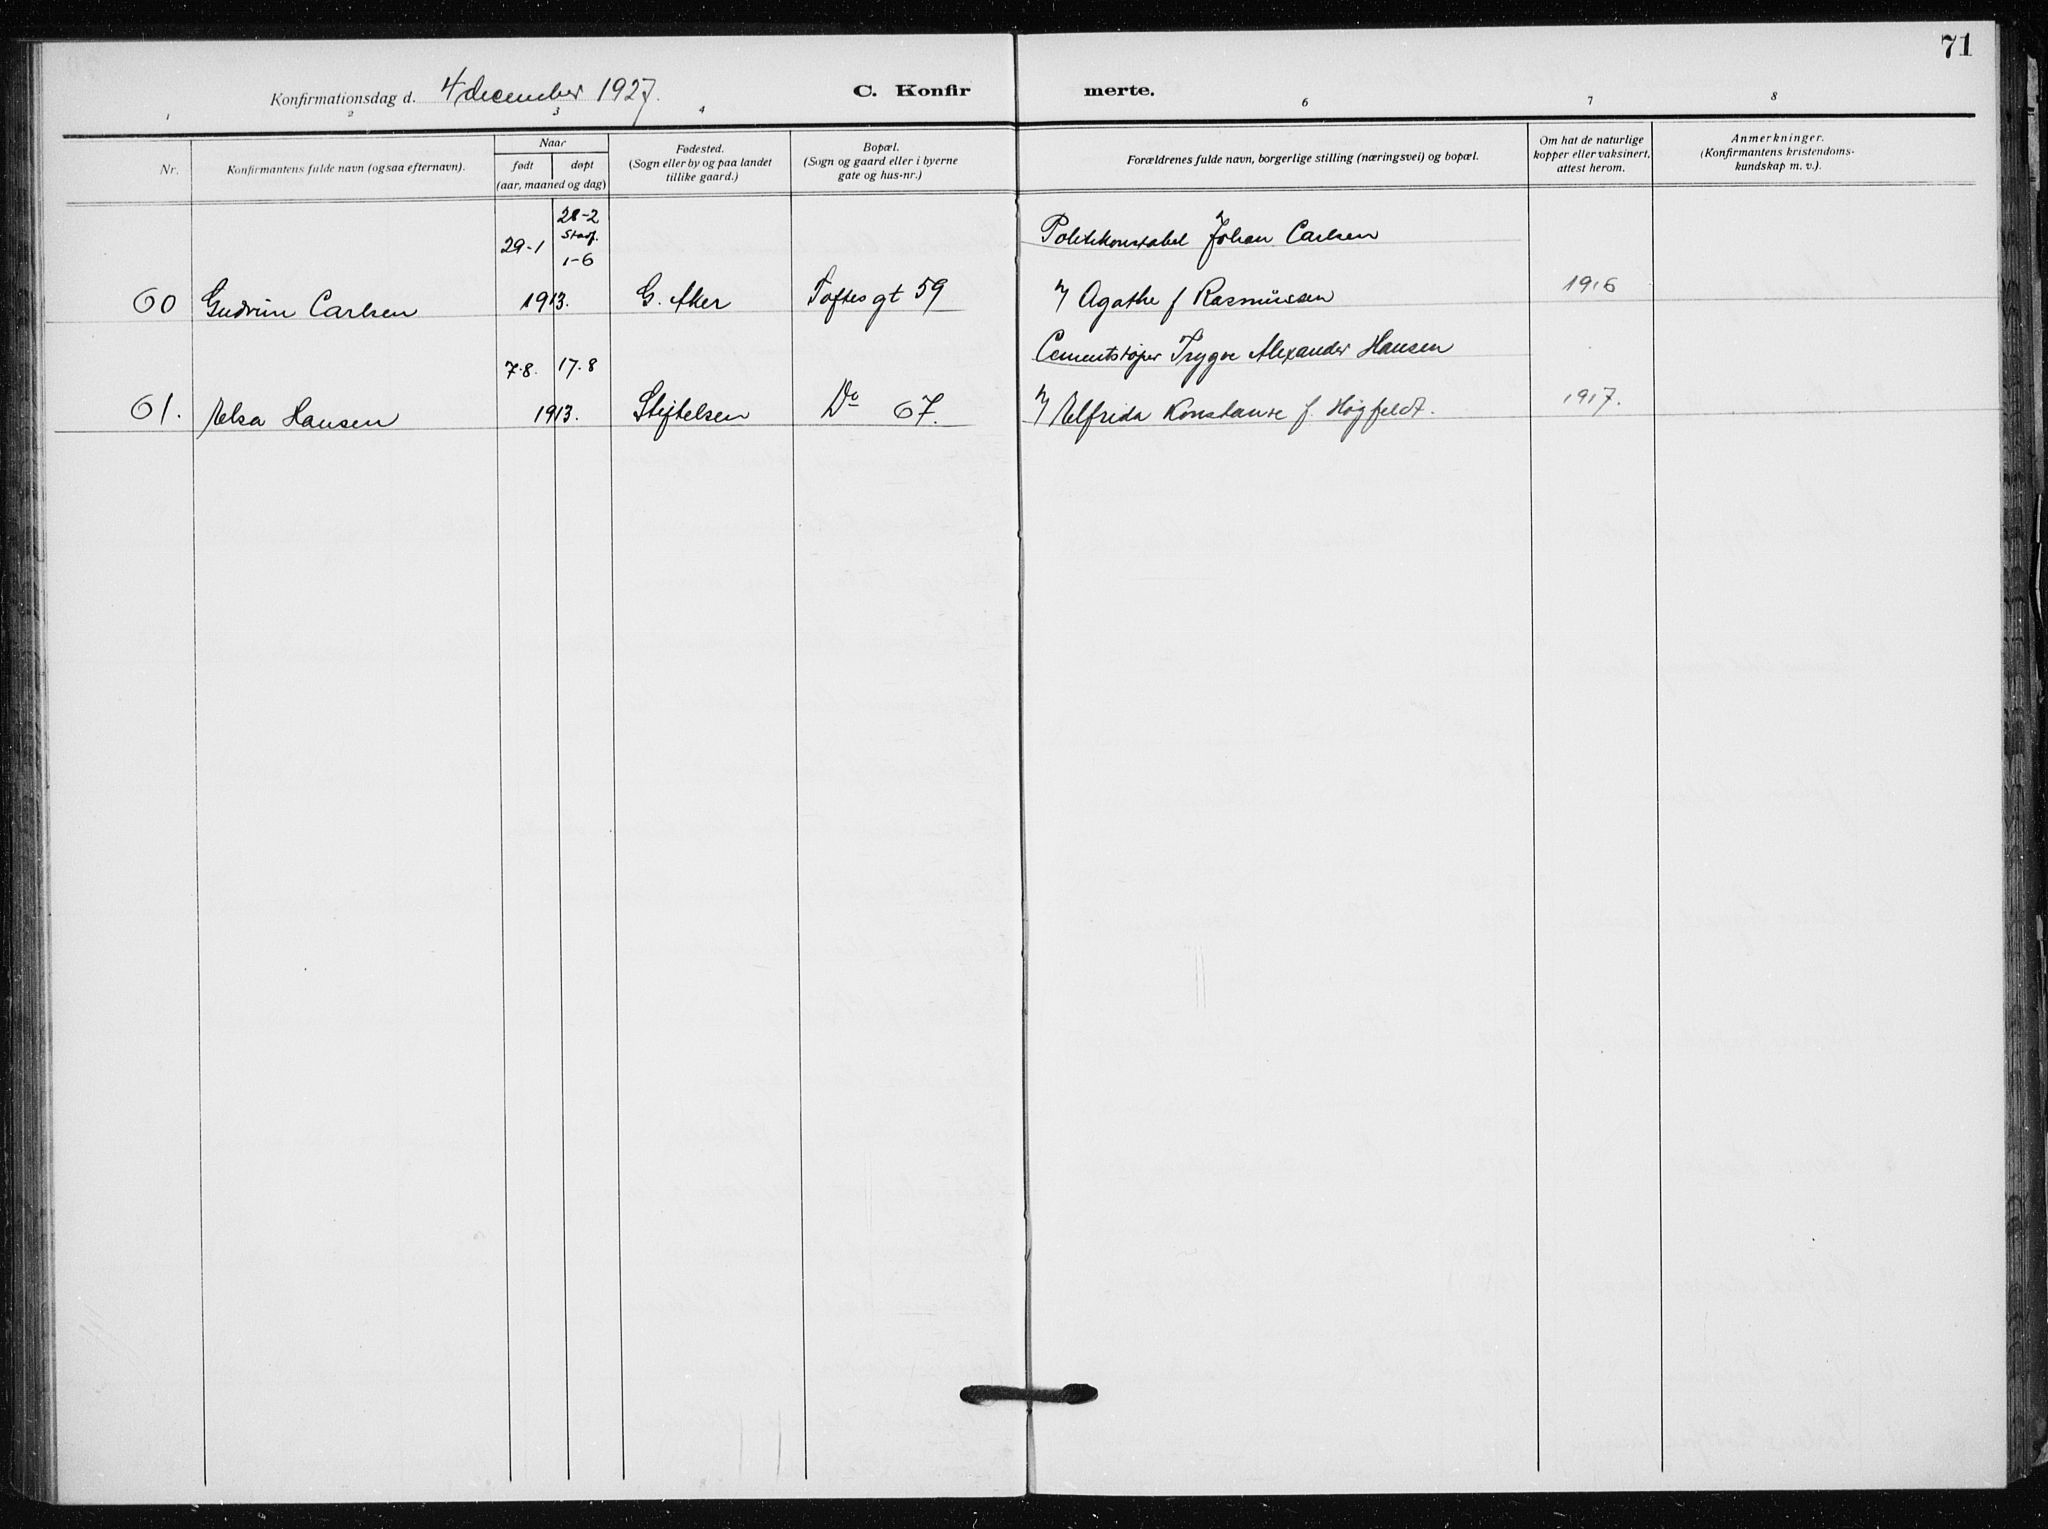 71
Konfirmationsdag d. 4 december 1927. C. Konfir merte.
1 2 3 4 6 7 8
Nr.
Konfirmantens fulde navn (ogsaa efternavn).
Naar
født døpt
(aar, maaned og dag)
Fødested.
(Sogn eller by og paa landet
tillike gaard.)
Bopæl.
(Sogn og gaard eller i byerne
gate og hus-nr.)
Forældrenes fulde navn, borgerlige stilling (næringsvei) og bopæl.
Om hat de naturlige
kopper eller vaksinert,
attest herom.
Anmerkninger.
(Konfirmantens kristendoms-
kundskap m. v.).
28-2
29-1
1-6
Politikonstabel Johan Carlsen
60 Gudrun Carlsen 1913. G. Aker Toftesgt 59 Agathe f Rasmussen 1916
7-8. 17.8 Cementstøper Trygve Alexander Hansen
61. Elsa Hansen 1913. Stiftelsen Do 67. Elfrida Konstanse f. Høgfeldt. 1917.